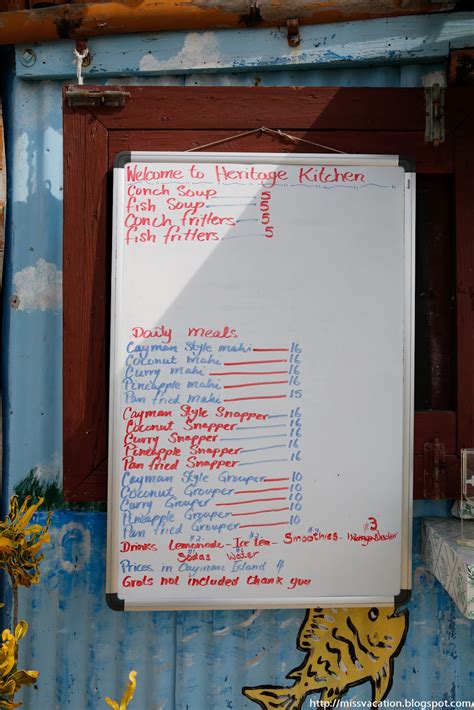 Welcome to Heritage Kitchen
Conch Soup 5
fish Soup 5
Conch fritters 5
fish fritters 5
Daily meals
Cayman Style mahi 16
Coconut mahi 16
Curry mahi 16
Pineapple mahi 16
Pan fried mahi 15
Cayman Style Snapper 16
Coconut Snapper 16
Curry Snapper 16
Pineapple Snapper 16
Pan fried Snapper
Cayman Style Grouper 10
Coconut Grouper 10
Curry Grouper 10
Pineapple Grouper 10
Pan fried Grouper
Drinks Lemonade - Ice tea - Smoothies -
Sodas Water
Prices in Cayman Island $
Grats not included thank you
http://missvacation.blogspot.com